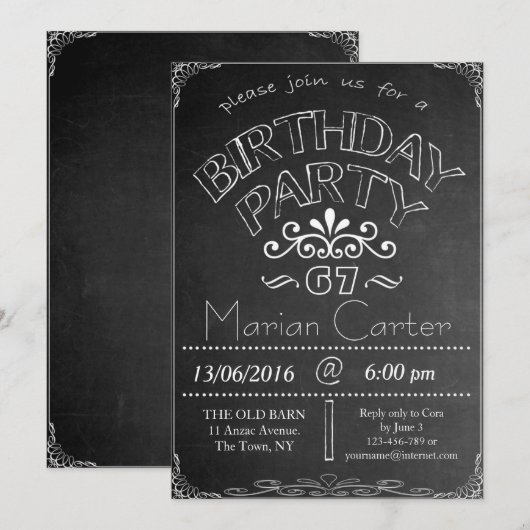 please join us for a
BIRTHDAY
PARTY
~ 67 ~
Marian Carter
13/06/2016 @ 6:00 pm
THE OLD BARN
11 Anzac Avenue.
The Town, NY
Reply only to Cora
by June 3
123-456-789 or
yourname@internet.com